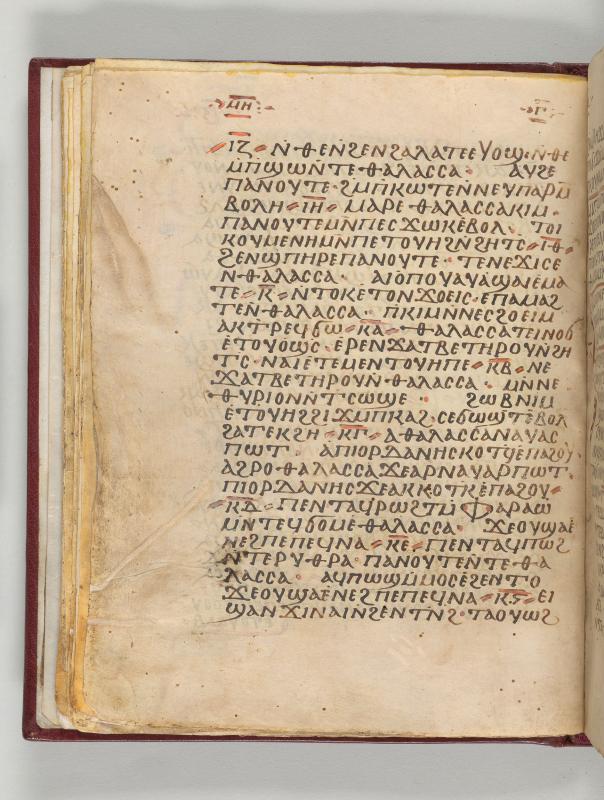 ⲙⲏ ⲅ
ⲓⲍ ⲛ̀ⲑⲉⲛϩⲉⲛϩⲁⲗⲁⲧⲉⲉⲩⲟϣ ⲛ̀ⲑⲉ
ⲙⲡϣⲱⲛ̀ⲧⲉⲑⲁⲗⲁⲥⲥⲁ ⲁⲩϩⲉ
ⲡⲁⲛⲟⲩⲧⲉ ϩⲙⲡⲕⲱⲧⲉⲛ̀ⲛⲉⲩⲡⲁⲣⲙ
ⲃⲟⲗⲏ ⲓⲏ ⲙⲁⲣⲉⲑⲁⲗⲁⲥⲥⲁⲕⲓⲙ
ⲡⲁⲛⲟⲩⲧⲉⲙⲛ̀ⲡⲉⲥϫⲱⲕⲉⲃⲟⲗ ⲧⲟⲓ
ⲕⲟⲩⲙⲉⲛⲏⲙⲛⲡⲉⲧⲟⲩⲏϩⲛ̀ϩⲏⲧⲥ ⲓⲑ
ϩⲉⲛϣⲡⲏⲣⲉⲡⲁⲛⲟⲩⲧⲉ ⲧⲉⲛⲉϫⲓⲥⲉ
ⲛ̀ⲑⲁⲗⲁⲥⲥⲁ ⲁⲓⲟⲡⲟⲩⲁⲩⲁϣⲁⲓⲉⲙⲁ
ⲧⲉ ⲕ ⲛ̀ⲧⲟⲕⲉⲧⲟⲛϫⲟⲉⲓⲥ ⲉⲡⲁⲙⲁϩ
ⲧⲉⲛ̀ⲑⲁⲗⲁⲥⲥⲁ ⲡⲕⲓⲙⲛ̀ⲛⲉⲥϩⲟⲉⲓⲙ
ⲁⲕⲧⲣⲉϥϭⲱ ⲕⲁ ⲑⲁⲗⲁⲥⲥⲁⲧⲉⲓⲛⲟϭ
ⲉ̀ⲧⲟⲩⲟϣⲥ ⲉⲣⲉⲛϫⲁⲧⲃⲉⲧⲏⲣⲟⲩⲛ̀ϩⲏ
ⲧⲥ ⲛⲁⲓⲉ̀ⲧⲉⲙⲉⲛⲧⲟⲩⲏⲡⲉ ⲕⲃ ⲛⲉ
ϫⲁⲧⲃⲉⲧⲏⲣⲟⲩⲛ̀ⲑⲁⲗⲁⲥⲥⲁ ⲙⲛ̀ⲛⲉ
ⲑⲩⲣⲓⲟⲛⲛ̀ⲧⲥⲱϣⲉ ϩⲱⲃⲛⲓⲙ
ⲉ̀ⲧⲟⲩⲏϩϩⲓϫⲙⲡⲕⲁϩ ⲥⲉϭⲱϣⲧⲉ̀ⲃⲟⲗ
ϩⲁⲧⲉⲕϩⲏ ⲕⲅ ⲁⲑⲁⲗⲁⲥⲥⲁⲛⲁⲩⲁⲥ
ⲡⲱⲧ ⲁⲡⲓⲟⲣⲇⲁⲛⲏⲥⲕⲟⲧϥⲉ̀ⲡⲁϩⲟⲩ
ⲁϩⲣⲟⲑⲁⲗⲁⲥⲥⲁϫⲉⲁⲣⲛⲁⲩⲁⲣⲡⲱⲧ
ⲡⲓⲟⲣⲇⲁⲛⲏⲥϫⲉⲁⲕⲕⲟⲧⲕⲉ̀ⲡⲁϩⲟⲩ
ⲕⲇ ⲡⲉⲛⲧⲁϥⲣⲱϩⲧⲙ̀ⲫⲁⲣⲁⲱ
ⲙⲛⲧⲉϥϭⲟⲙⲉ̀ⲑⲁⲗⲁⲥⲥⲁ ϫⲉⲟⲩϣⲁⲉ̀
ⲛⲉϩⲡⲉⲡⲉϥⲛⲁ ⲕⲉ ⲡⲉⲛⲧⲁϥⲡⲱϩ
ⲛ̀ⲧⲉⲣⲩⲑⲣⲁ ⲡⲁⲛⲟⲩⲧⲉⲛ̀ⲧⲉⲑⲁ
ⲗⲁⲥⲥⲁ ⲁϥⲡⲱϣⲙ̀ⲙⲟⲥⲉ̀ϩⲉⲛⲧⲟ
ϫⲉⲟⲩϣⲁⲉ̀ⲛⲉϩⲡⲉⲡⲉϥⲛⲁ ⲕⲋ ⲉⲓ
ϣⲁⲛϫⲓⲛⲁⲓⲛ̀ϩⲉⲛⲧⲛ̀ϩ ⲧⲁⲟⲩⲱϩ